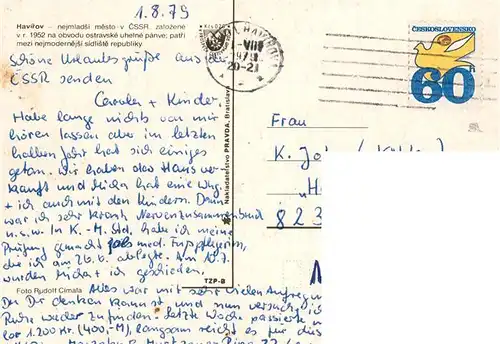 1.8.79
Havířov – nejmladší město v ČSSR, založené
v r. 1952 na obvodu ostravské uhelné pánve; patří
mezi nejmodernější sídliště republiky
Schöne Urlaubsgrüße aus der
ČSSR senden
Carola + Kinder.
Habe lange nichts von mir
hören lassen aber im letzten
halben Jahr hat sich einiges
getan. Wir haben das Haus ver-
kauft und Micha hat eine Whg.
+ ich auch mit den Kindern. Dann
war ich sehr krank Nervenzusammenbruch
u.s.w. In K.-M.-Std. habe ich meine
Prüfung gemacht als med. Fußpflegerin,
die ich am 26.6. ablegte. Am 10.7.
wurden Micha + ich geschieden.
Foto Rudolf Címala
Alles war mit sehr vielen Aufregungen
Du Dir denken kannst und nun versuch ich
Ruhe wieder zu finden. Letzte Woche passierte
1.200 Kr. (400,-M), langsam reicht es für
Nakladatelství PRAVDA, Bratislava
TZP-B
HAVÍŘOV
VIII
ČESKOSLOVENSKO
60
Frau
K.
823